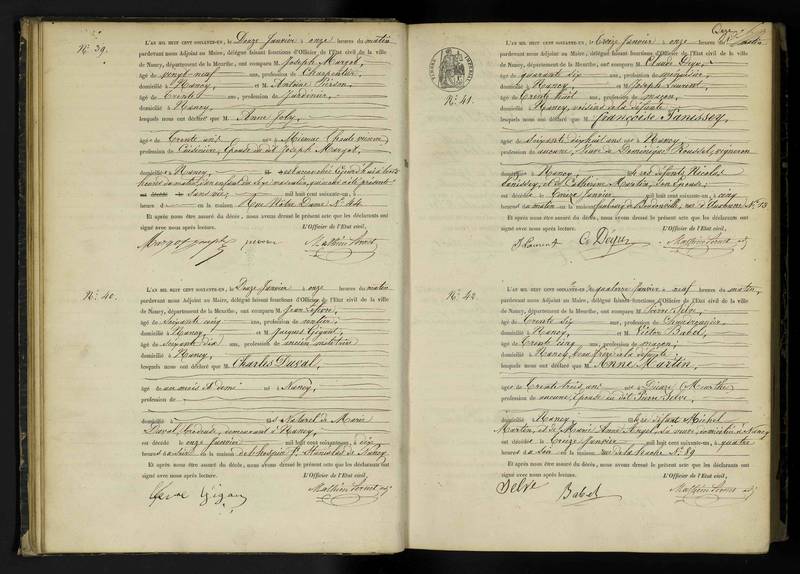 N°. 39.
L'AN MIL HUIT CENT SOIXANTE-UN, le Douze Janvier à onze heures du matin
pardevant nous Adjoint au Maire, délégué faisant fonctions d'Officier de l'Etat civil de la ville
de Nancy, département de la Meurthe, ont comparu M. Joseph Margot,
âgé de vingt-neuf ans, profession de Charpentier,
domicilié à Nancy, et M. Antoine Pierson,
âgé de trente ans, profession de Jardinier,
domicilié à Nancy,
lesquels nous ont déclaré que M. Anne Joly,
âgée de Trente ans née à
profession de Cuisinière, Epouse du dit Joseph Margot,
domiciliée à Nancy, est accouchée
heures du matin, d'un enfant du sexe masculin, qui nous a été présenté
sans vie
heure d en la maison Rue Notre Dame N°. 44
Et après nous être assuré du décès, nous avons dressé le présent acte que les déclarants ont
signé avec nous après lecture. L'Officier de l'Etat civil,
Margot joseph
N°. 40.
L'AN MIL HUIT CENT SOIXANTE-UN, le Douze Janvier à onze heures du matin
pardevant nous Adjoint au Maire, délégué faisant fonctions d'Officier de l'Etat civil de la ville
de Nancy, département de la Meurthe, ont comparu M. Jean
âgé de Soixante cinq ans, profession de rentier,
domicilié à Nancy, et M. Jacques Gigant,
âgé de Soixante dix ans, profession de ancien militaire
domicilié à Nancy,
lesquels nous ont déclaré que M. Charles Duval,
âgé de un mois et demi né à Nancy,
profession de
domicilié à fils naturel de Marie
Duval, demeurant à Nancy,
est décédé le onze Janvier mil huit cent soixante-un, à dix
heures du soir en la maison de l'hospice St. Stanislas de Nancy
Et après nous être assuré du décès, nous avons dressé le présent acte que les déclarants ont
signé avec nous après lecture. L'Officier de l'Etat civil,
Gigant
N°. 41.
L'AN MIL HUIT CENT SOIXANTE-UN, le Treize Janvier à onze heures du matin
pardevant nous Adjoint au Maire, délégué faisant fonctions d'Officier de l'Etat civil de la ville
de Nancy, département de la Meurthe, ont comparu M. Claude
âgé de quarante six ans, profession de menuisier,
domicilié à Nancy, et M. Joseph Laurent,
âgé de Trente huit ans, profession de maçon,
domicilié à Nancy, voisins de la défunte
lesquels nous ont déclaré que M. Françoise
âgée de Soixante dix huit ans née à Nancy
profession de aucune, Veuve de Dominique Roussel, vigneron
domiciliée à Nancy, fille des défunts Nicolas
et de Catherine Martin, son Epouse;
est décédée le Treize Janvier mil huit cent soixante-un, à cinq
heures du matin en la maison faubourg de N°. 13
Et après nous être assuré du décès, nous avons dressé le présent acte que les déclarants ont
signé avec nous après lecture. L'Officier de l'Etat civil,
J Laurent
N°. 42.
L'AN MIL HUIT CENT SOIXANTE-UN, le quatorze Janvier à neuf heures du matin,
pardevant nous Adjoint au Maire, délégué faisant fonctions d'Officier de l'Etat civil de la ville
de Nancy, département de la Meurthe, ont comparu M. Pierre Selve,
âgé de Trente six ans, profession de
domicilié à Nancy, et M. Victor Babel,
âgé de Trente cinq ans, profession de maçon;
domicilié à Nancy, beau frère de la défunte
lesquels nous ont déclaré que M. Anne Martin,
âgée de Trente trois ans née à Dieuze (Meurthe)
profession de aucune, Epouse du dit Pierre Selve,
domiciliée Nancy, fille de défunt Michel
Martin, et de Marie Anne sa veuve, domiciliée à Nancy
est décédée le Treize Janvier mil huit cent soixante-un, à quatre
heures du soir en la maison rue de la hache N°. 89
Et après nous être assuré du décès, nous avons dressé le présent acte que les déclarants ont
signé avec nous après lecture. L'Officier de l'Etat civil,
Selve
Babel